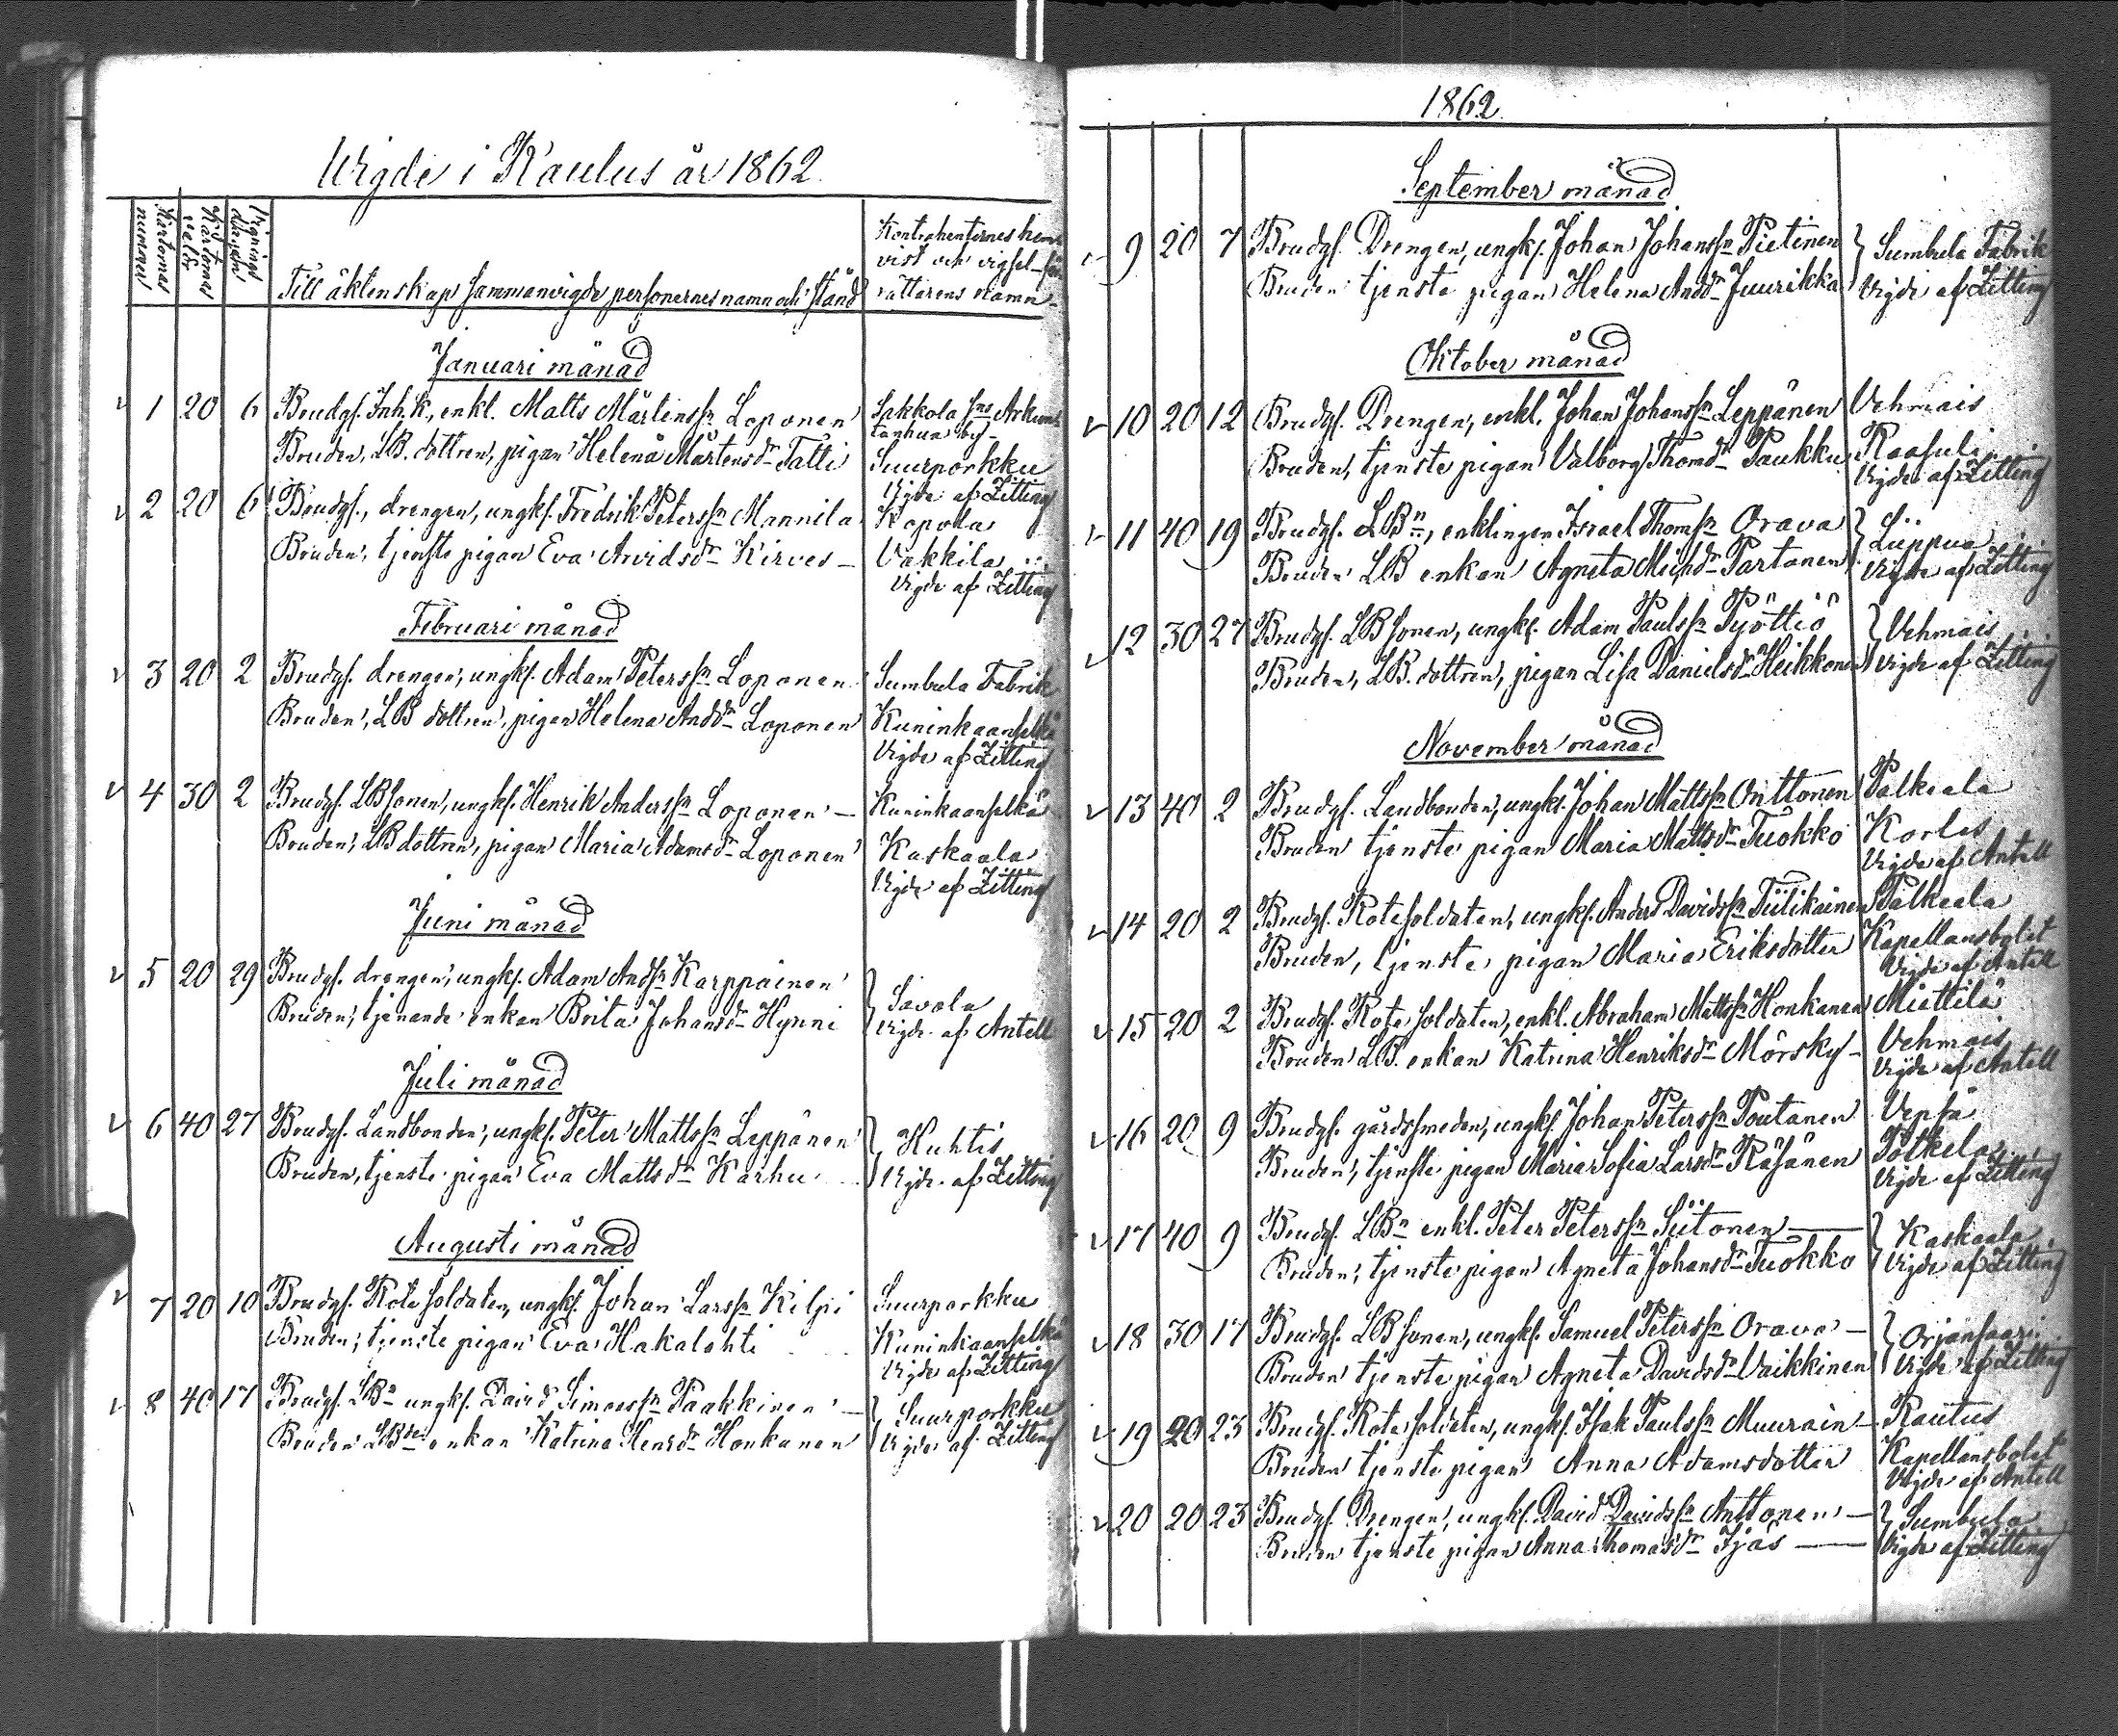 Wigde i Raulus år 1862.
Kartornas nummer
Kartornas valör
Vignings dagen
Till äktenskap sammanvigde personernes namn och stånd
Kontrahenternes hem-
vist och vigsel-för-
rättarens namn
Januari månad
1 20 6 Brudgs. Inh. k., enkl. Matts Mårtenssn Loponen
Sakkola sns Arkun-
tanhua by-
Bruden, LB. dottren, pigan Helena Mårtensdr Tatti
Suurporkku
Vigde af Zitting
2 20 6 Brudgs., drengen, ungk. Fredrik Peterssn Mannila
Kopola
Bruden, tjenste pigan Eva Arvidsdr Kirves -
Vakkila
Vigde af Zitting
Februari månad
3 20 2 Brudgs. drengen, ungk. Adam Peterssn Loponen
Sumbula Fabrik
Bruden, LB dottren, pigan Helena Anddr Loponen
Kuninkaanselkä
Vigde af Zitting
4 30 2 Brudgs. LBsonen, ungk. Henrik Anderssn Loponen -
Kuninkaanselkä
Bruden, LB dottren, pigan Maria Adamsdr Loponen
Kaskaala
Vigde af Zitting
Juni månad
5 20 29 Brudgs. drengen, ungk. Adam Andsn Karppainen
Savola
Bruden, tjenande enkan Brita Johansdr Hynni
Vigde af Antell
Juli månad
6 40 27 Brudgs. Landbonden, ungk. Peter Mattssn Leppänen
Huhtis
Bruden, tjenste pigan Eva Mattsdr Karhu
Vigde af Zitting
Augusti månad
7 20 10 Brudgs. Rote soldaten, ungk. Johan Larssn Kilpi
Suurporkku
Bruden, tjenste pigan Eva Hakalahti
Kuninkaanselkä
Vigde af Zitting
8 40 17 Brudgs. LBn ungk. David Simonssn Paakkinen -
Suurporkku
Bruden LBde enkan Katrina Henrdr Honkanen
Vigde af Zitting
1862.
September månad
9 20 7 Brudgs. Drengen, ungk. Johan Johanssn Pietinen
Sumbula Fabrik
Bruden tjenste pigan Helena Anddr Juurikka
Vigde af Zitting
Oktober månad
10 20 12 Brudgs. Drengen, enkl. Johan Johanssn Leppänen
Vehmais
Bruden, tjenste pigan Valborg Thomdr Paukku
Raasuli
Vigde af Zitting
11 40 19 Brudgs. LBn, enklingen Israel Thomsn Orava
Liippua
Bruden LB enkan Agneta Michdr Partanen
Vigde af Zitting
12 30 27 Brudgs. LBsonen, ungk. Adam Paulssn Pyöttiö
Vehmais
Bruden, LB. dottren, pigan Lisa Danielsdr Heikkonen
Vigde af Zitting
November månad
13 40 2 Brudgs. Landbonden, ungk. Johan Mattssn Onttonen
Palkeala
Bruden tjenste pigan Maria Mattsdr Tuokko
Korles
Vigde af Antell
14 20 2 Brudgs. Rotesoldaten, ungk. Anders Davidssn Tiilikainen
Palkeala
Bruden, tjenste pigan Maria Eriksdotter
Kapellansbolet
Vigde af Antell
15 20 2 Brudgs. Rote soldaten, enkl. Abraham Mattssn Honkanen
Miettilä
Bruden LB. enkan Katrina Henriksdr Mörsky -
Vehmais
Vigde af Antell
16 20 9 Brudgs. gårdssmeden, ungk. Johan Peterssn Poutanen
Vepsä
Bruden, tjenste pigan Maria Sofia Larsdr Räsänen
Potkela
Vigde af Zitting
17 40 9 Brudgs. LBn enkl. Peter Peterssn Siitonen -
Kaskaala
Bruden, tjenste pigan Agneta Johansdr Tuokko
Vigde af Zitting
18 30 17 Brudgs. LB sonen, ungk. Samuel Peterssn Orava -
Orjansaari
Bruden tjenste pigan Agneta Davidsdr Vaikkinen
Vigde af Zitting
19 20 23 Brudgs. Rote soldaten, ungk. Isak Paulssn Muurain -
Rautus
Bruden tjenste pigan Anna Adamsdotter
Kapellansbolet
Vigde af Antell
20 20 23 Brudgs. Drengen, ungk. David Davidssn Anttonen -
Sumbula
Bruden tjenste pigan Anna Thomasdr Ijäs -
Vigde af Zitting